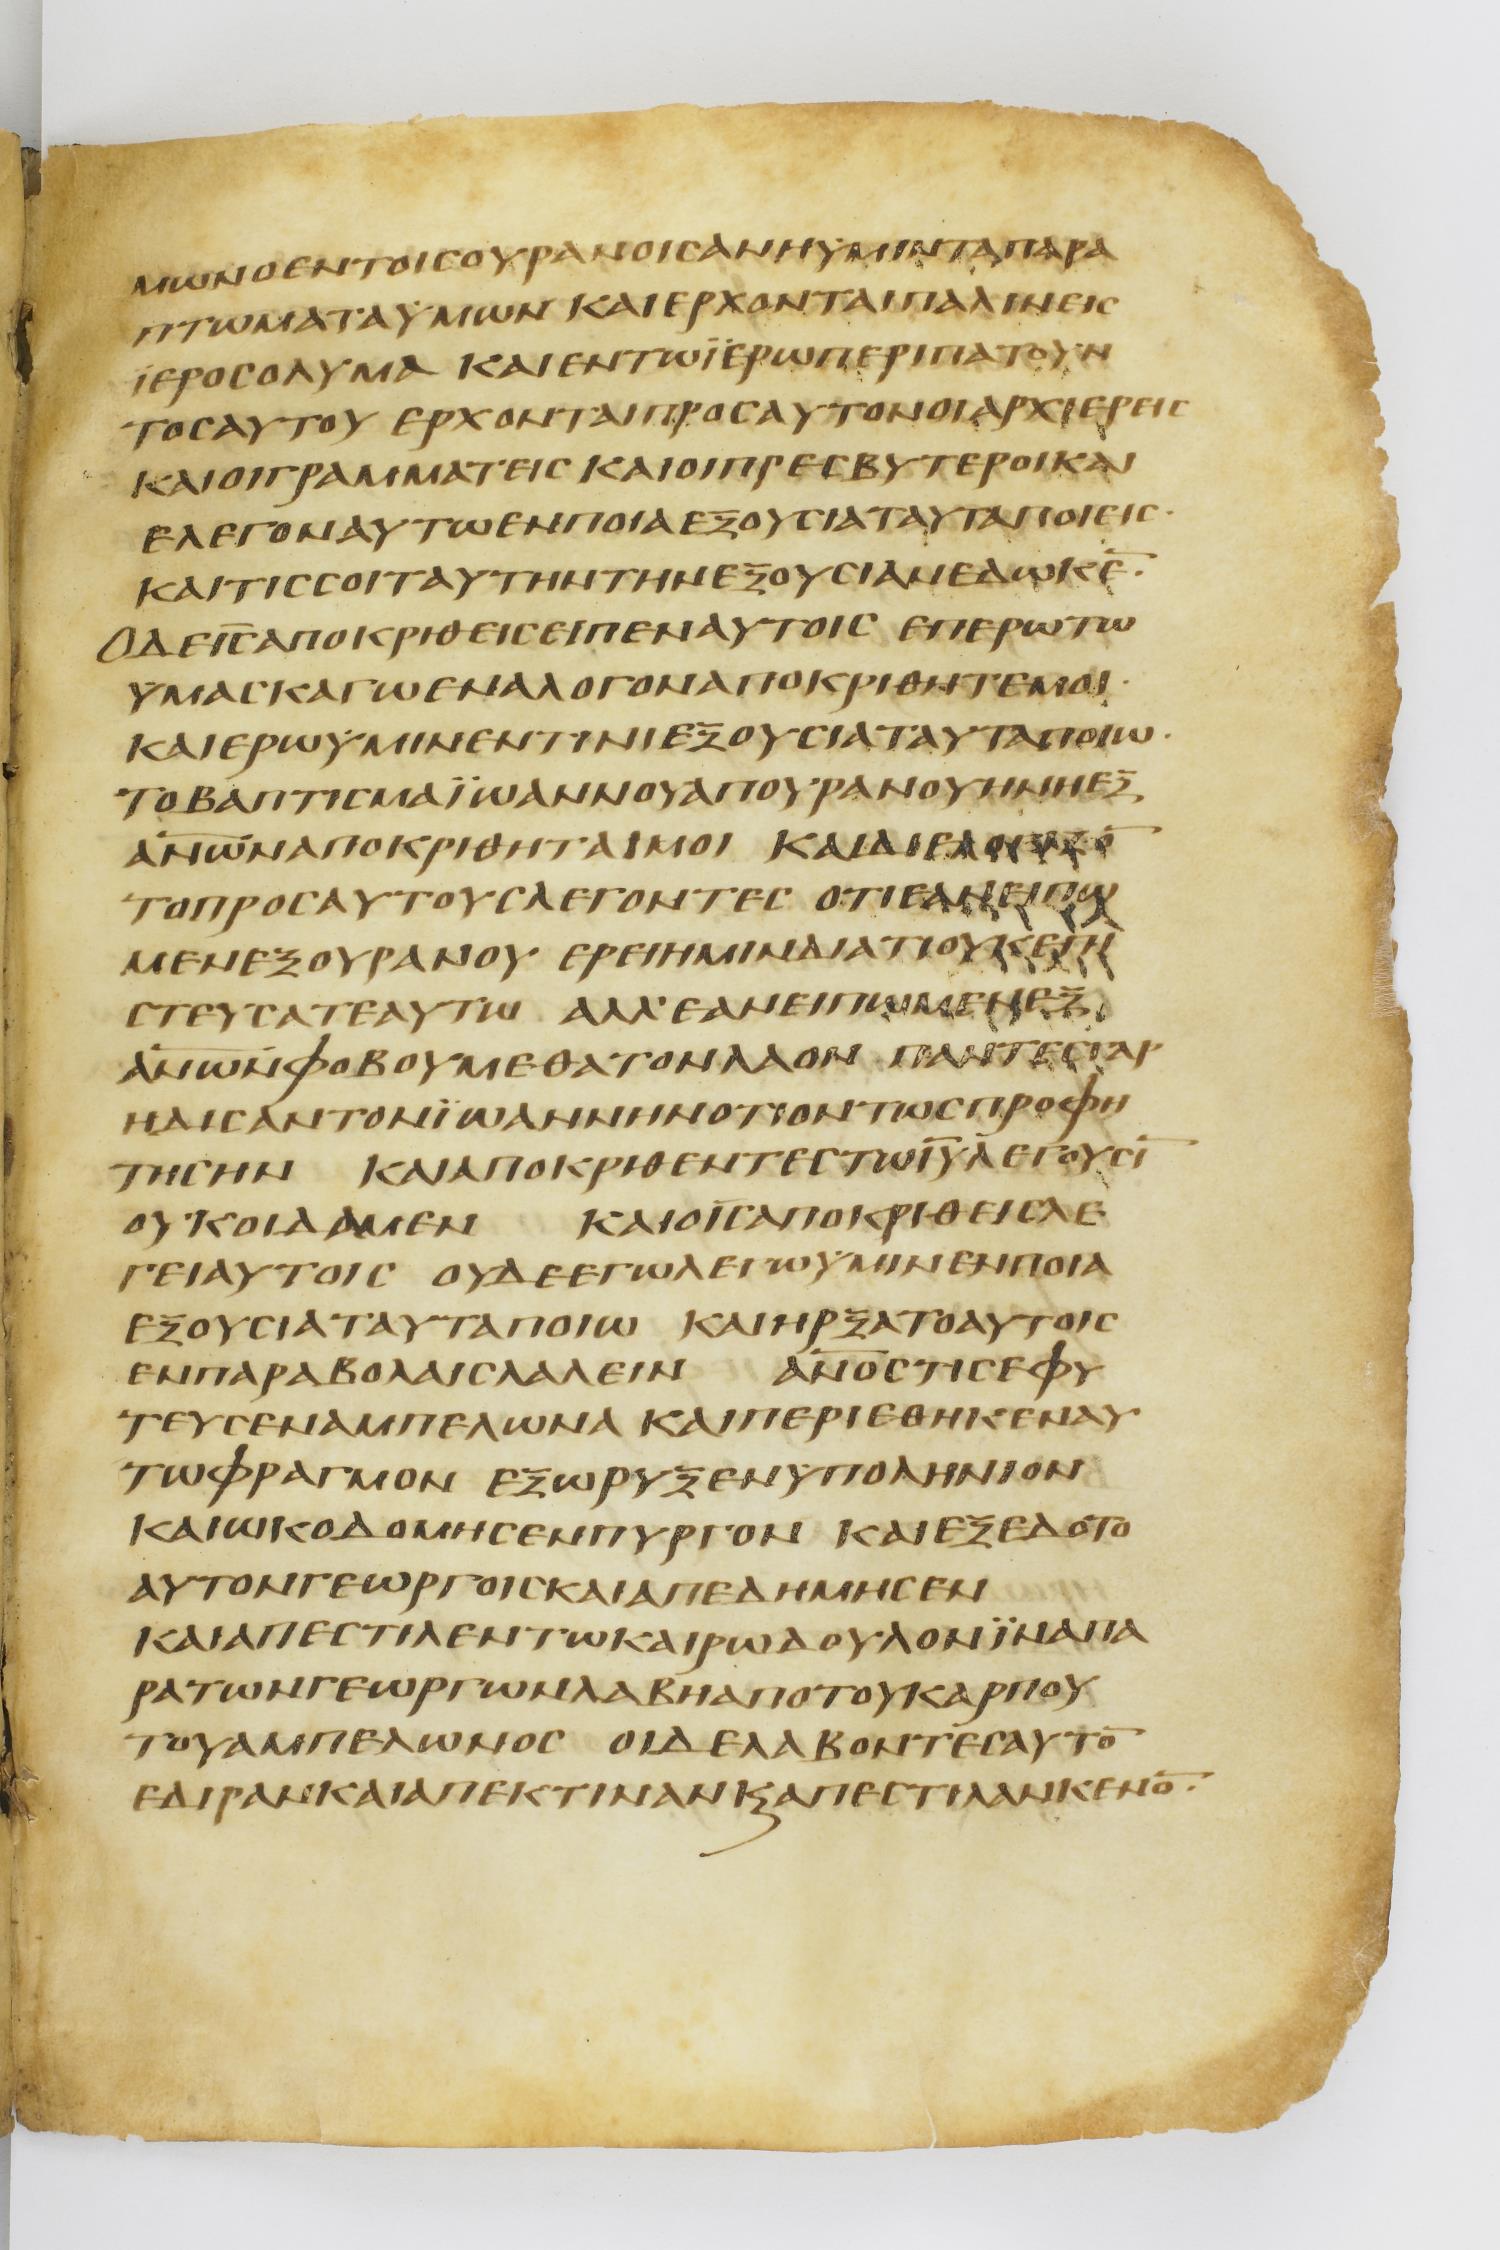 μωνοεντοιςουρανοιςανηϋμινταπαρα
πτωματαϋμων καιερχονταιπαλινεις
ϊεροςολυμα καιεντωϊερωπεριπατουν
τοςαυτου ερχονταιπροςαυτονοιαρχιερεις
καιοιγραμματεις καιοιπρεςβυτεροικαι
ελεγοναυτωενποιαεξουςιαταυταποιεις·
καιτιςςοιταυτηντηνεξουςιανεδωκε̅·
Οδει̅ς̅αποκριθειςειπεναυτοις επερωτω
ϋμαςκαγωεναλογοναποκριθητεμοι·
καιερωϋμινεντινιεξουςιαταυταποιω·
τοβαπτιςμαϊωαννουαπουρανουηνηεξ
α̅ν̅ω̅ναποκριθηταιμοι καιδιελογιζο̅
τοπροςαυτουςλεγοντες οτιεανειπω
μενεξουρανου ερειημινδιατιουκεπι
ςτευςατεαυτω αλλ'εανειπωμενεξ
α̅ν̅ω̅νφοβουμεθατονλαον παντεςγαρ
ηδιςαντονϊωαννηνοτιοντωςπροφη
τηςην καιαποκριθεντεςτωι̅υ̅λεγουςι̅
ουκοιδαμεν καιοι̅ς̅αποκριθειςλε
γειαυτοις ουδεεγωλεγωϋμινενποια
εξουςιαταυταποιω καιηρξατοαυτοις
ενπαραβολαιςλαλειν α̅ν̅ο̅ςτιςεφυ
τευςεναμπελωνα καιπεριεθηκεναυ
τωφραγμον εξωρυξενϋποληνιον
καιωκοδομηςενπυργον καιεξεδοτο
αυτονγεωργοιςκαιαπεδημηςεν
καιαπεςτιλεντωκαιρωδουλονϊναπα
ρατωνγεωργωνλαβηαποτουκαρπου
τουαμπελωνος οιδελαβοντεςαυτο̅
εδιρανκαιαπεκτινανϗαπεςτιλανκενο̅·